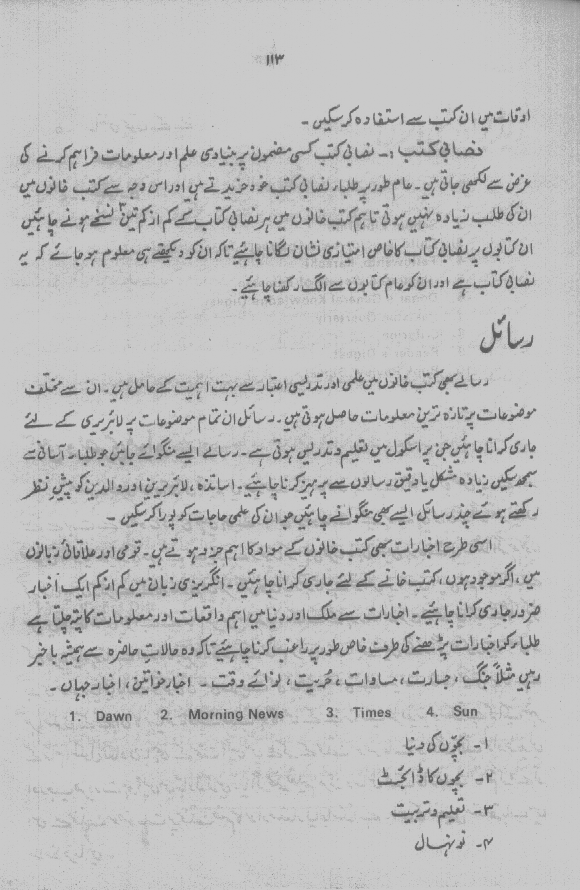 ۱۱۳
اوقات میں ان کتب سے استفادہ کر سکیں۔
نصابی کتب :۔ نصابی کتب کسی مضمون پر بنیادی علم اور معلومات فراہم کرنے کی
غرض سے لکھی جاتی ہیں۔ عام طور پر طلباء نصابی کتب خود خریدتے ہیں اور اس وجہ سے کتب خانوں میں
ان کی طلب زیادہ نہیں ہوتی تاہم کتب خانوں میں ہر نصابی کتاب کے کم از کم تین ۳ نسخے ہونے چاہئیں
ان کتابوں پر نصابی کتاب کا خاص امتیازی نشان لگانا چاہئیے تاکہ ان کو دیکھتے ہی معلوم ہو جائے کہ یہ
نصابی کتاب ہے اور ان کو عام کتابوں سے الگ رکھنا چاہئیے۔
رسائل
رسالے بھی کتب خانوں میں علمی اور تدریسی اعتبار سے بہت اہمیت کے حامل ہیں۔ ان سے مختلف
موضوعات پر تازہ ترین معلومات حاصل ہوتی ہیں۔ رسائل ان تمام موضوعات پر لائبریری کے لئے
جاری کرانا چاہئیں جن پر اسکول میں تعلیم و تدریس ہوتی ہے۔ رسالے ایسے منگوائے جائیں جو طلباء آسانی سے
سمجھ سکیں زیادہ مشکل یا دقیق رسالوں سے پرہیز کرنا چاہئیے۔ اساتذہ، لائبریرین اور والدین کو پیش نظر
رکھتے ہوئے چند رسائل ایسے بھی منگوانے چاہئیں جو ان کی علمی حاجات کو پورا کر سکیں۔
اسی طرح اخبارات بھی کتب خانوں کے مواد کا اہم جزو ہوتے ہیں۔ قومی اور علاقائی زبانوں
میں، اگر موجود ہوں، کتب خانے کے لئے جاری کرانا چاہئیں۔ انگریزی زبان میں کم از کم ایک اخبار
ضرور جاری کرانا چاہئیے۔ اخبارات سے ملک اور دنیا میں اہم واقعات اور معلومات کا پتہ چلتا ہے
طلباء کو اخبارات پڑھنے کی طرف خاص طور پر راغب کرنا چاہئیے تاکہ وہ حالات حاضرہ سے ہمیشہ باخبر
رہیں مثلاً جنگ، جسارت، مساوات، حُریت، نوائے وقت۔ اخبار خواتین، اخبار جہاں۔
1. Dawn 2. Morning News 3. Times 4. Sun
۱۔ بچّوں کی دنیا
۲۔ بچوں کا ڈائجسٹ
۳۔ تعلیم و تربیت
۴۔ نونہال